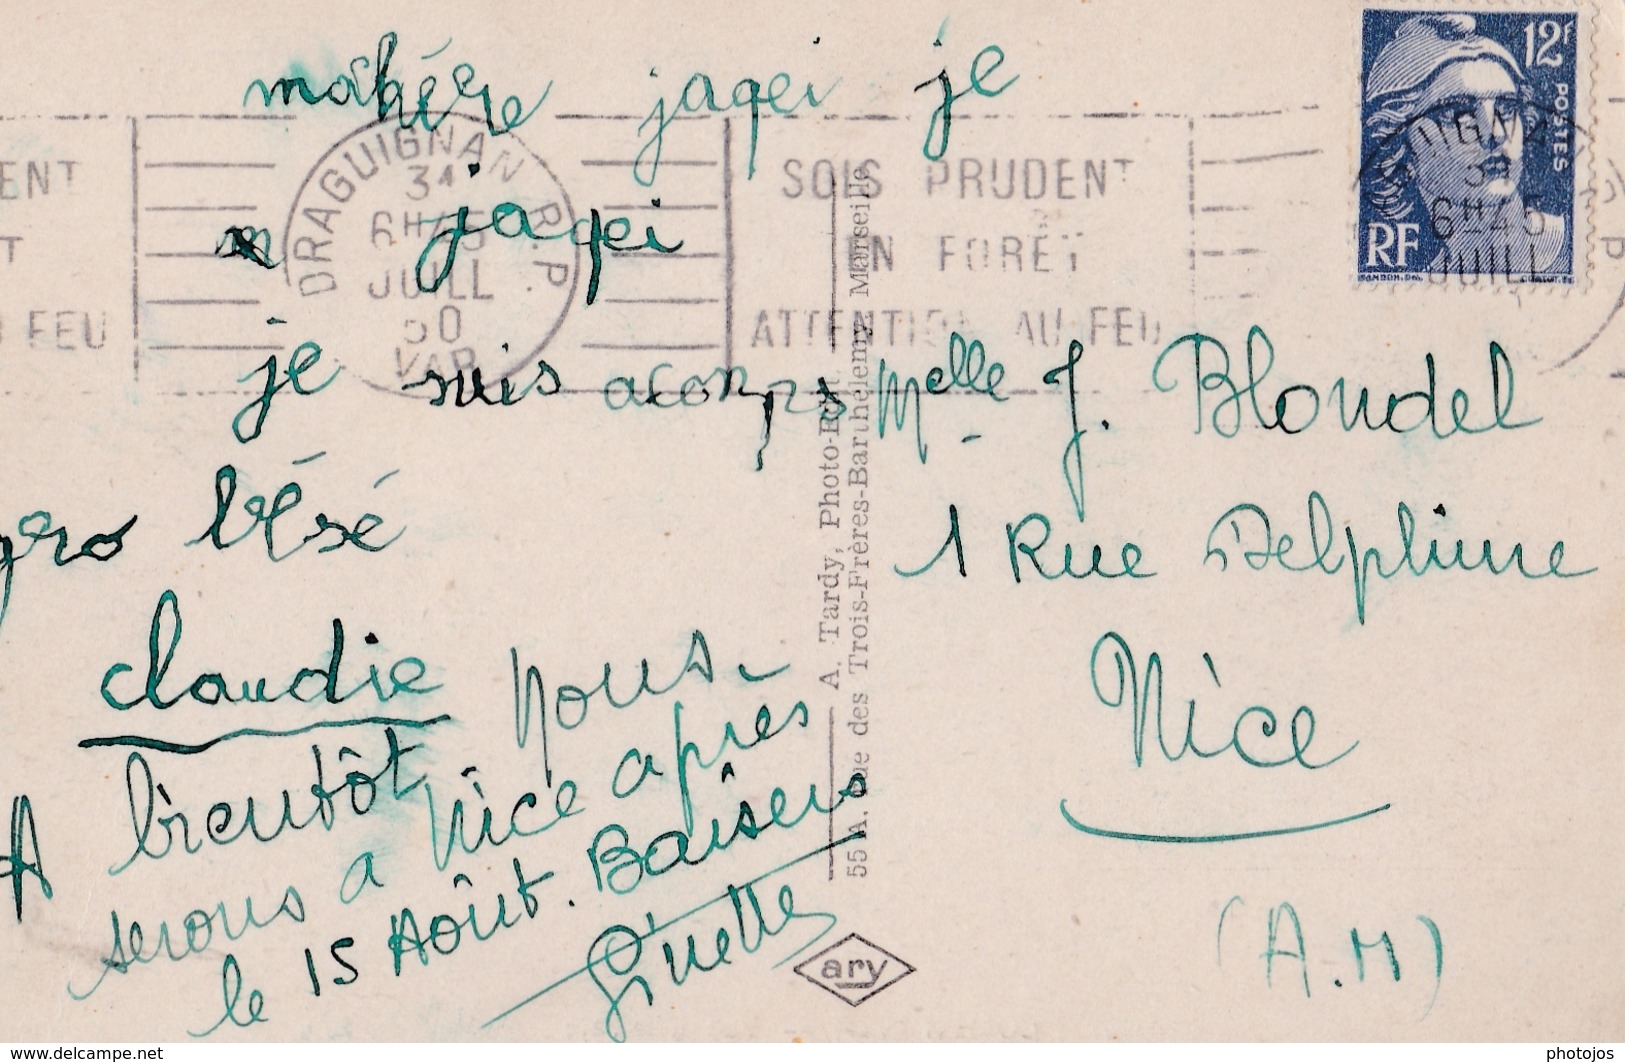 mahère jaqei je
m jaqei
je suis acomps
gro bésé
claudie
A bientôt nous
serons a Nice apres
le 15 Aôut. Baisers
Ginette
Melle J. Blondel
1 Rue Delphine
Nice
(A.M)
12F
POSTES
RF
DRAGUIGNAN R.P
31
6H45
JUILL
50
VAR
SOIS PRUDENT
EN FORÊT
ATTENTION AU FEU
ENT
T
U FEU
UIGNAN
31
6H45
JUILL
A. Tardy, Photo-Edit.
55 A. Rue des Trois-Frères-Barthélemy, Marseille
ary
delcampe.net
photojos